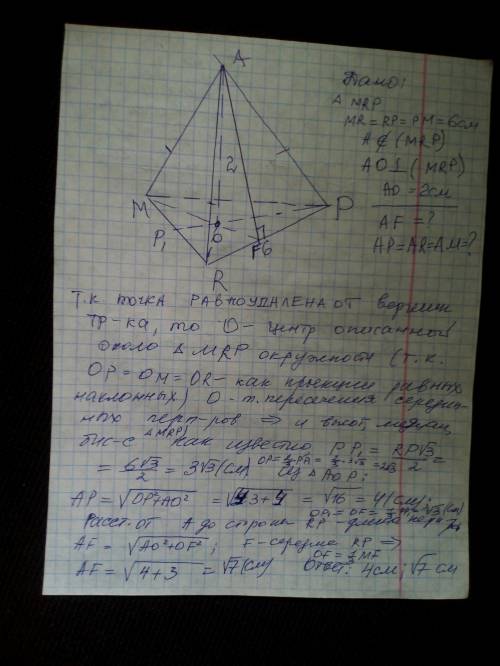 A
2
M
P
P₁
O
F
6
R
Дано:
Δ MRP
MR = RP = PM = 6см
A ∉ (MRP)
AO ⊥ (MRP)
AO = 2см
AF = ?
AP = AR = AM = ?
Т.к точка РАВНОУДАЛЕНА ОТ вершин
тр-ка, то O - центр описанной
около Δ MRP окружности (т.к.
OP = OM = OR - как проекции равных
наклонных) O - т. пересечения середин-
ных перп-ров ⇒ и высот, медиан,
бис-с Δ MRP) Как известно PP₁ = RP√3/2 =
= 6√3/2 = 3√3 (см) OP = 2/3 PP₁ = 2/3 · 3√3 = 2√3 Из Δ AOP:
AP = √OP²+AO² = √4·3+4 = √16 = 4 (см);
OP₁ = OF = √3 (см)
Расст. от A до стороны RP - длина перп-ра
AF = √AO²+OF²; F - середина RP ⇒
OF = 1/3 MF
AF = √4+3 = √7 (см) Ответ: 4см; √7 см